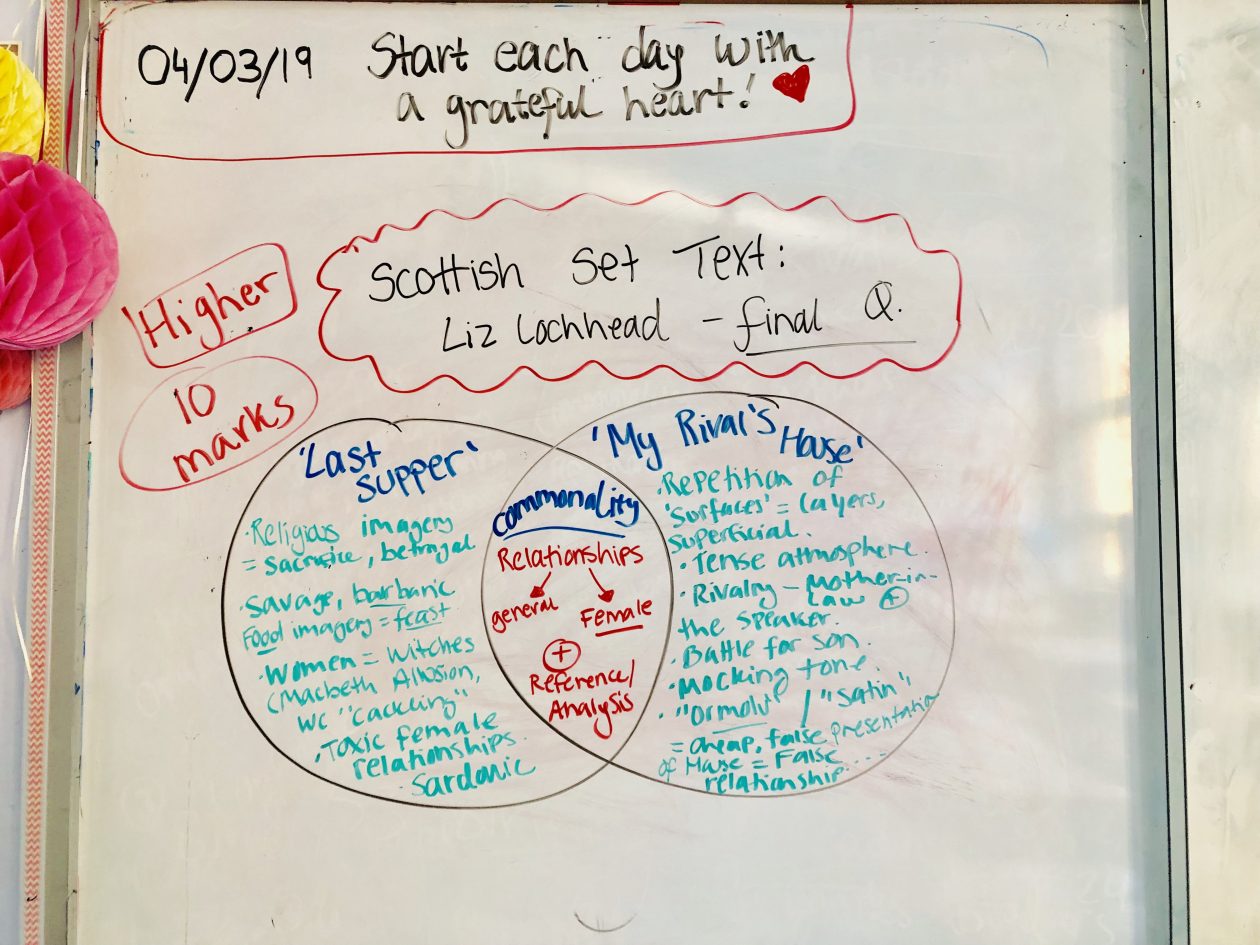 04/03/19 Start each day with
a grateful heart! ♥
Higher
10
marks
Scottish Set Text:
Liz Lochhead - final Q.
'Last
Supper'
·Religious imagery
= sacrifice, betrayal
·Savage, barbaric
Food imagery = feast
·Women = witches
(Macbeth Allusion,
WC "cackling"
·Toxic female
relationships.
·Sardonic
Commonality
Relationships
general Female
+
Reference/
Analysis
'My Rival's House'
·Repetition of
'Surfaces' = layers,
superficial.
·Tense atmosphere.
·Rivalry - Mother-in-
Law +
the speaker.
Battle for son.
·Mocking tone.
·"Ormolu" / "Satin"
= cheap, false presentation
of House = False ....
relationship